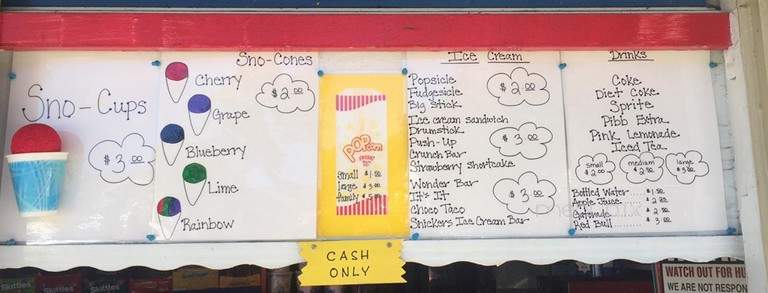 Sno-Cups
$3.00
Sno-Cones
Cherry
$2.00
Grape
Blueberry
Lime
Rainbow
POP
corn
small $1.50
large $3.00
family $5.00
CASH
ONLY
Ice Cream
Popsicle
Fudgesicle
Big Stick
$2.00
Ice cream sandwich
Drumstick
Push-Up
Crunch Bar
Strawberry shortcake
$3.00
Wonder Bar
It's It
Choco Taco
Snickers Ice Cream Bar
$3.00
Drinks
Coke
Diet Coke
Sprite
Pibb Extra
Pink Lemonade
Iced Tea
small $2.00
medium $2.50
large $3.00
Bottled Water $1.50
Apple Juice $2.50
Gatorade
Red Bull
Skittles
Skittles
Skittles
WATCH OUT FOR HU
WE ARE NOT RESPON